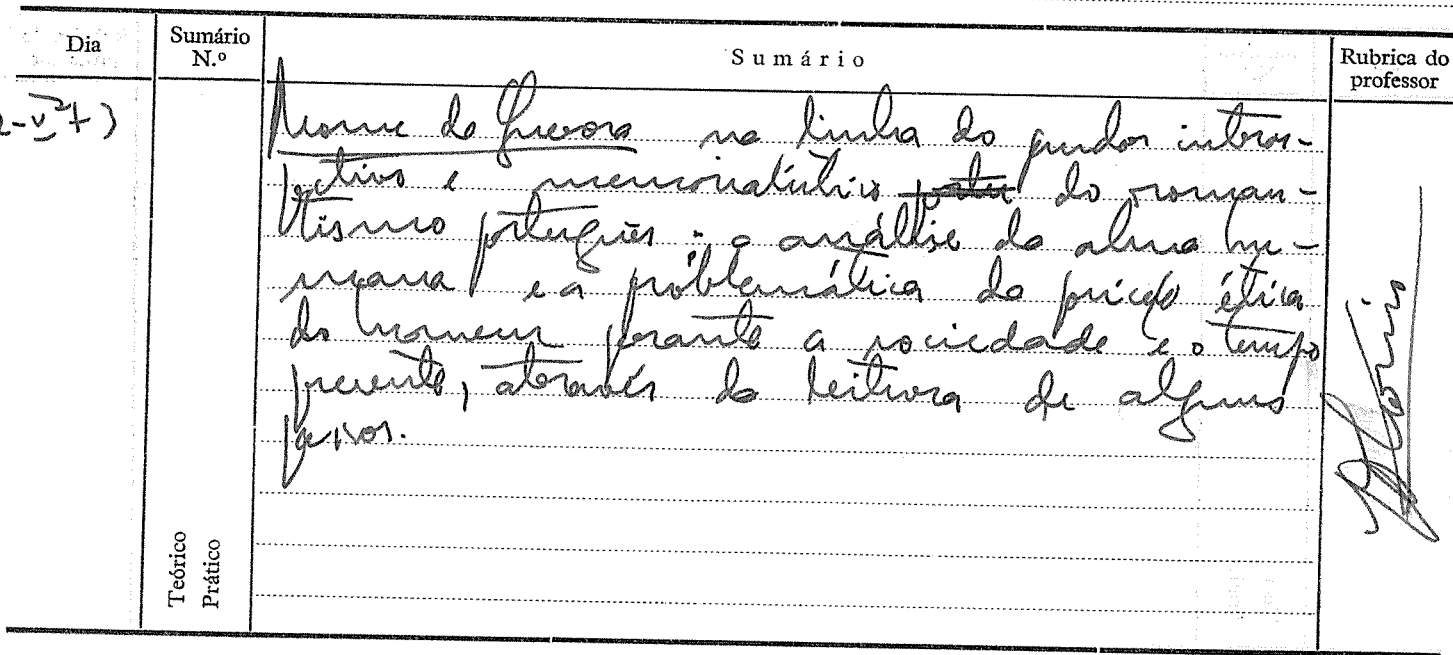 Dia
Sumário
N.º
Sumário
Rubrica do
professor
Nome de Guerra na linha do pendor intros-
pectivo e memorialístico do roman-
tismo português: a análise da alma hu-
mana e a problemática da posição ética
do homem perante a sociedade e o tempo
presente, através da leitura de alguns
passos.
Teórico
Prático